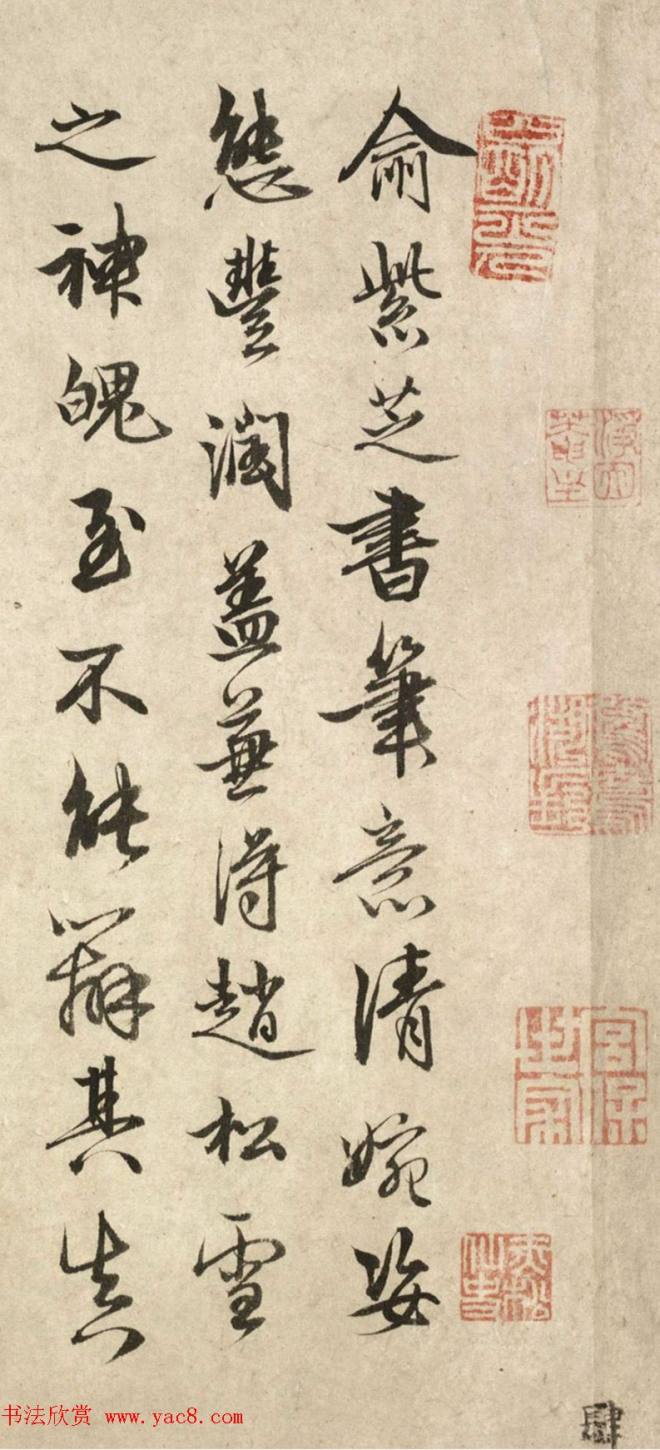 俞紫芝書筆意清婉姿
態豐潤蓋兼得趙松雪
之神魄至不能辨其真
肆
书法欣赏 www.yac8.com